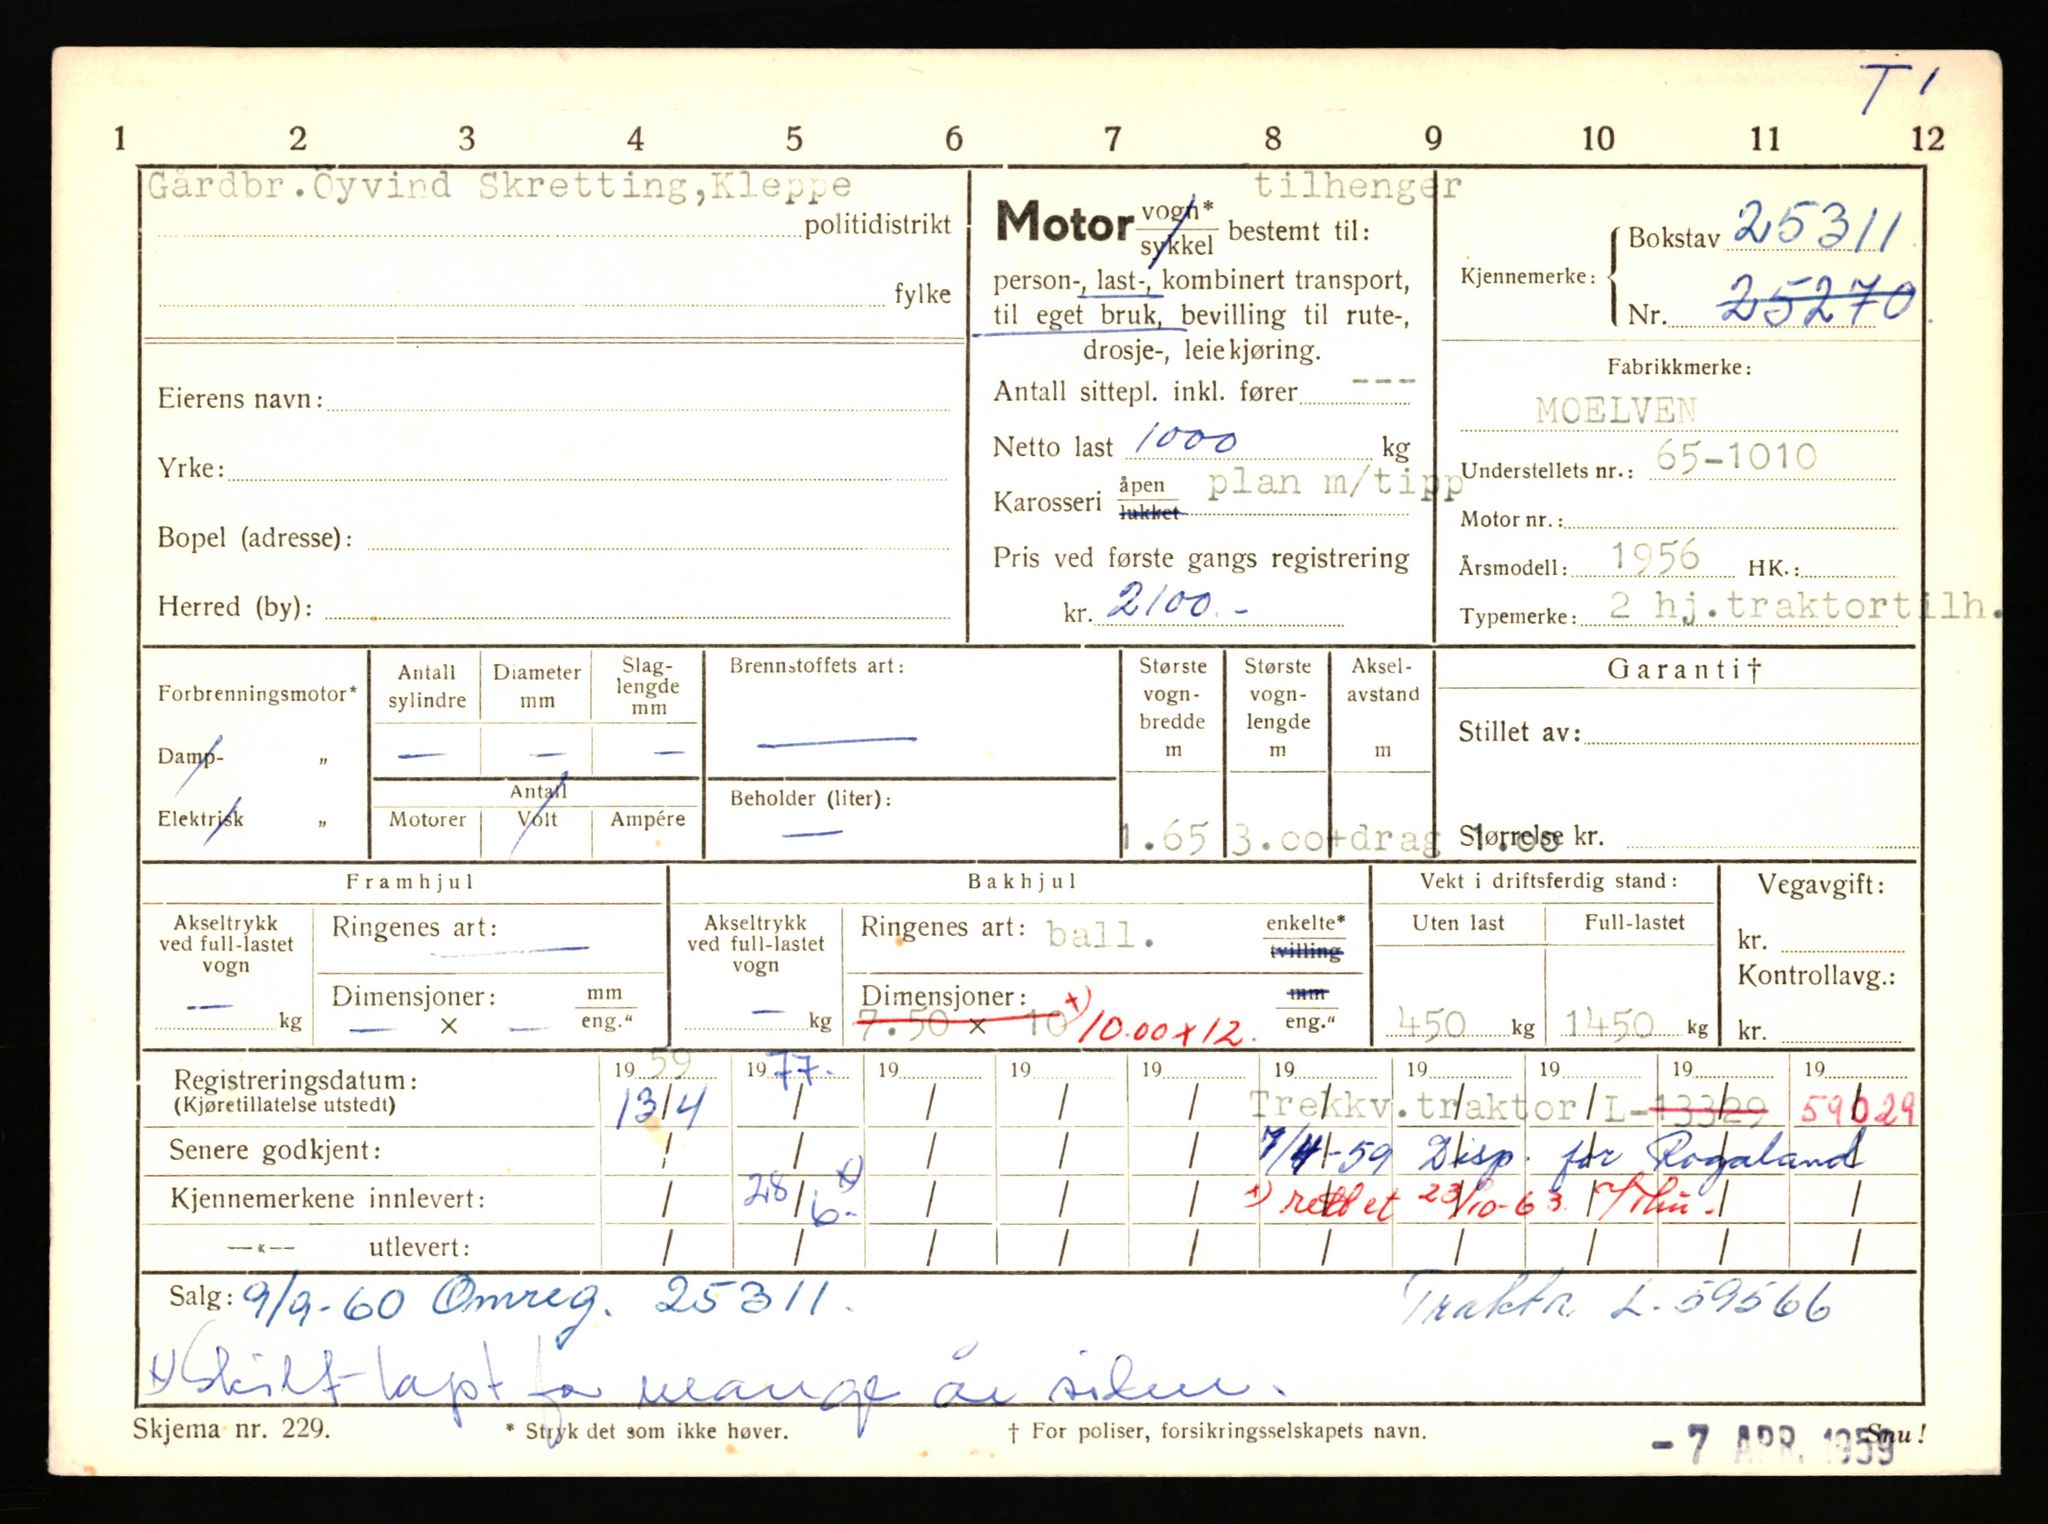 T 1
1 2 3 4 5 6 7 8 9 10 11 12
Gårdbr. Öyvind Skretting, Kleppe
politidistrikt
fylke
Eierens navn:
Yrke:
Bopel (adresse):
Herred (by):
tilhenger
Motor vogn* sykkel bestemt til:
person-, last-, kombinert transport,
til eget bruk, bevilling til rute-,
drosje-, leiekjøring.
Antall sittepl. inkl. fører ---
Netto last 1000 kg
Karosseri åpen lukket plan m/tipp
Pris ved første gangs registrering
kr. 2100.-
Kjennemerke: Bokstav 25311
Nr. 25270
Fabrikkmerke:
MOELVEN
Understellets nr.: 65-1010
Motor nr.:
Årsmodell: 1956 HK.:
Typemerke: 2 hj.traktortilh.
Forbrenningsmotor*
Damp- „
Elektrisk „
Antall sylindre —
Diameter mm —
Slag-lengde mm —
Antall
Motorer Volt Ampére
Brennstoffets art: —
Beholder (liter): —
Største vogn-bredde m 1.65
Største vogn-lengde m 3.oo+drag 1.oo
Aksel-avstand m
Garanti†
Stillet av:
Størrelse kr.
Framhjul
Akseltrykk ved full-lastet vogn — kg
Ringenes art: —
Dimensjoner: — × — mm eng."
Bakhjul
Akseltrykk ved full-lastet vogn — kg
Ringenes art: ball. enkelte* tvilling
Dimensjoner: 7.50 × 10 +) 10.00 x 12. mm eng."
Vekt i driftsferdig stand:
Uten last 450 kg
Full-lastet 1450 kg
Vegavgift:
kr.
Kontrollavg.:
kr.
Registreringsdatum: 1959 1977. 19 19 19 19 19 19 19 19
(Kjøretillatelse utstedt) 13/4 / / / / Trekkv.traktor L-13329 59029
Senere godkjent: 7/4-59 Disp. for Rogaland
Kjennemerkene innlevert: 28/6- x) +) rettet 23/10-63.
—«— utlevert:
Salg: 9/9-60 Omreg. 25311. Traktor L-59566
x) Skilt tapt for mange år siden.
Skjema nr. 229. * Stryk det som ikke høver. † For poliser, forsikringsselskapets navn. Snu!
- 7 APR. 1959